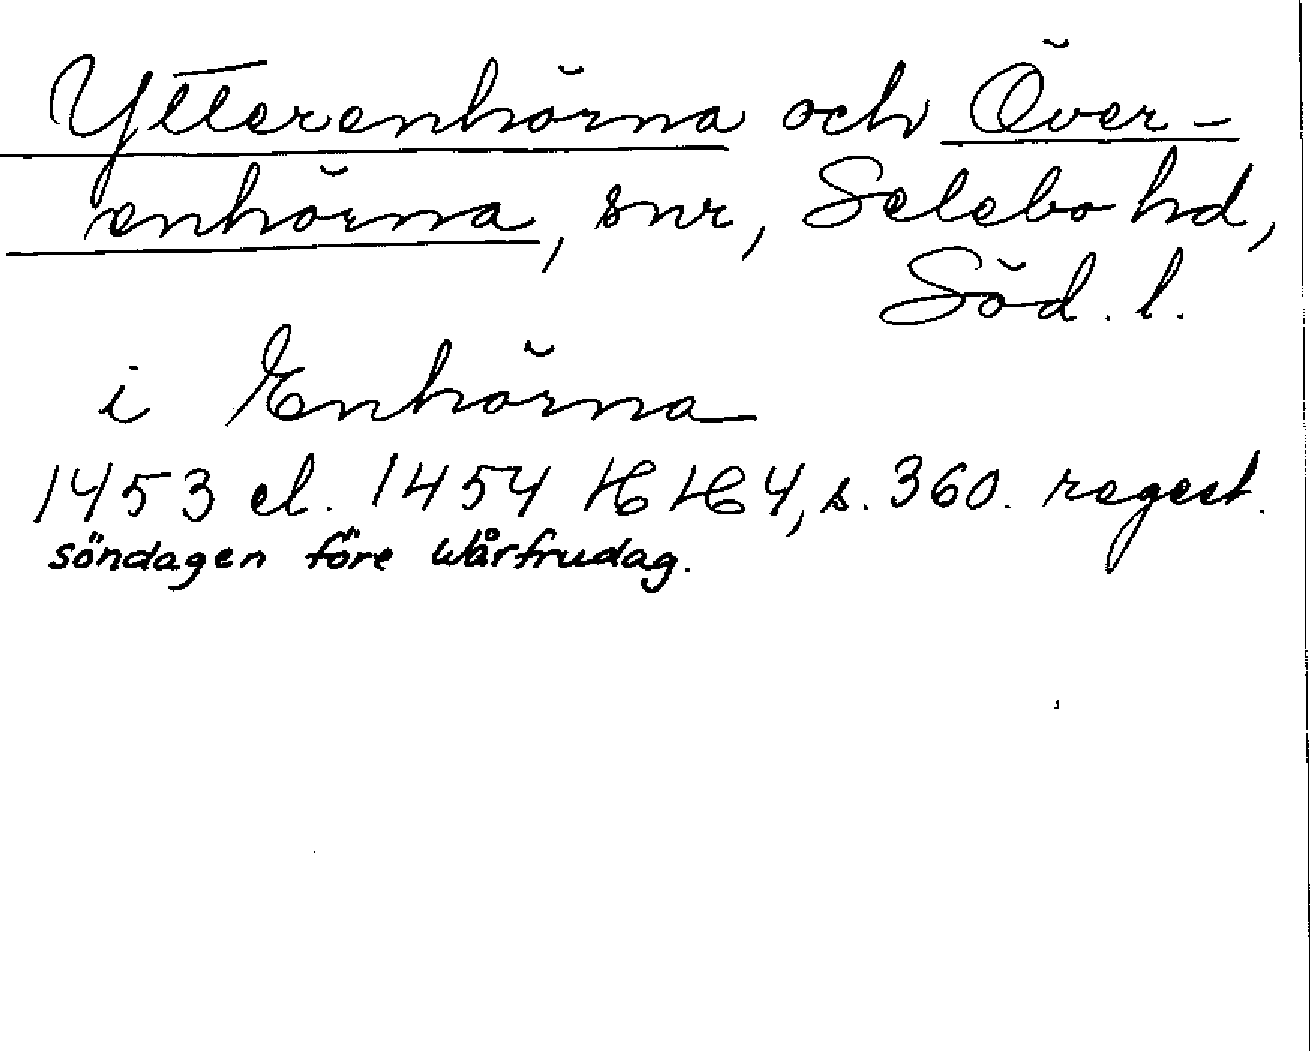 Ytterenhörna och Över-
enhörna, snr, Selebo hd,
Söd. l.
i Enhörna
1453 el. 1454 HH 4, s. 360. regest.
söndagen före wårfrudag.